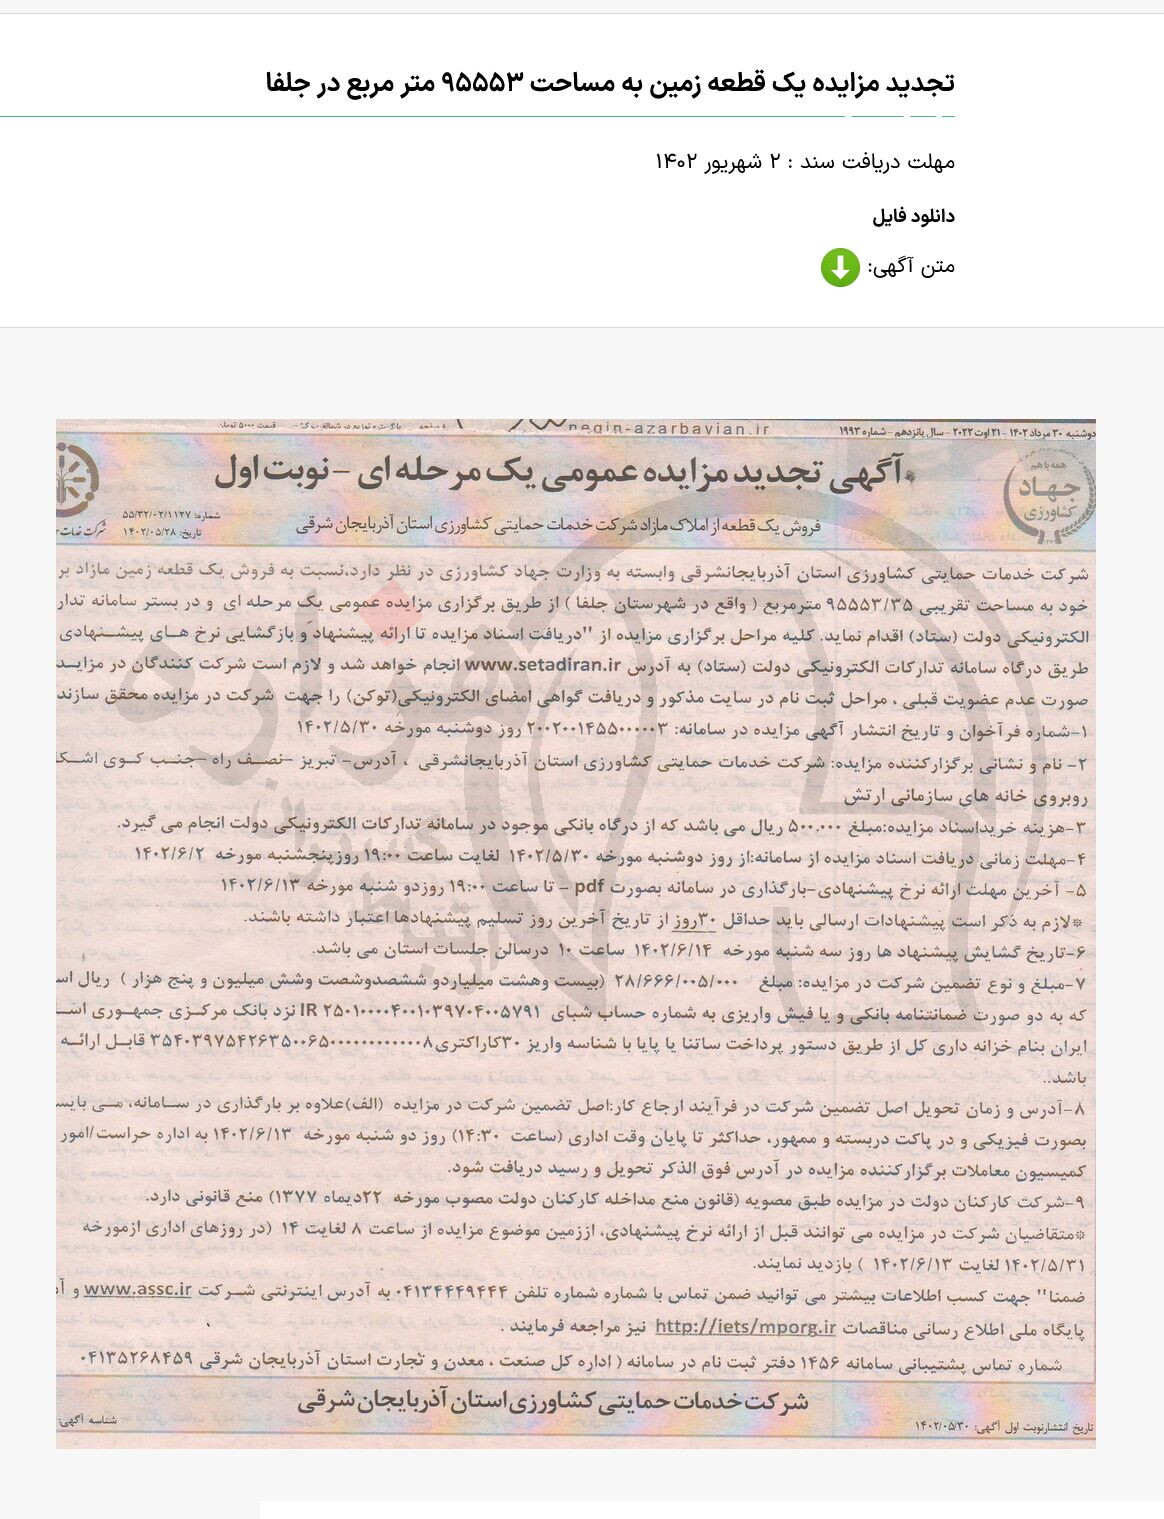 تجدید مزایده یک قطعه زمین به مساحت ۹۵۵۵۳ متر مربع در جلفا
مهلت دریافت سند : ۲ شهریور ۱۴۰۲
دانلود فایل
متن آگهی:
دوشنبه ۳۰ مرداد ۱۴۰۲ - ۲۱ اوت ۲۰۲۲ - سال پانزدهم - شماره ۱۹۹۳
negin-azarbayjan.ir
۸ صفحه
قیمت ۵۰۰۰ تومان
همه با هم
جهاد
کشاورزی
آگهی تجدید مزایده عمومی یک مرحله ای - نوبت اول
فروش یک قطعه از املاک مازاد شرکت خدمات حمایتی کشاورزی استان آذربایجان شرقی
شماره: ۵۵/۳۲/۰۲/۱۱۲۷
تاریخ: ۱۴۰۲/۰۵/۲۸
شرکت خدمات
شرکت خدمات حمایتی کشاورزی استان آذربایجانشرقی وابسته به وزارت جهاد کشاورزی در نظر دارد،نسبت به فروش یک قطعه زمین مازاد بر
خود به مساحت تقریبی ۹۵۵۵۳/۳۵ مترمربع ( واقع در شهرستان جلفا ) از طریق برگزاری مزایده عمومی یک مرحله ای و در بستر سامانه تدار
الکترونیکی دولت (ستاد) اقدام نماید. کلیه مراحل برگزاری مزایده از "دریافت اسناد مزایده تا ارائه پیشنهاد و بازگشایی نرخ هـای پیشـنهادی
طریق درگاه سامانه تدارکات الکترونیکی دولت (ستاد) به آدرس www.setadiran.ir انجام خواهد شد و لازم است شرکت کنندگان در مزایـد
صورت عدم عضویت قبلی ، مراحل ثبت نام در سایت مذکور و دریافت گواهی امضای الکترونیکی(توکن) را جهت شرکت در مزایده محقق سازند
۱-شماره فرآخوان و تاریخ انتشار آگهی مزایده در سامانه: ۲۰۰۲۰۰۱۴۵۵۰۰۰۰۰۳ روز دوشنبه مورخه ۱۴۰۲/۵/۳۰
۲- نام و نشانی برگزارکننده مزایده: شرکت خدمات حمایتی کشاورزی استان آذربایجانشرقی ، آدرس- تبریز -نصـف راه -جنـب کـوی اشـکا
روبروی خانه های سازمانی ارتش
۳-هزینه خریداسناد مزایده:مبلغ ۵۰۰.۰۰۰ ریال می باشد که از درگاه بانکی موجود در سامانه تدارکات الکترونیکی دولت انجام می گیرد.
۴-مهلت زمانی دریافت اسناد مزایده از سامانه:از روز دوشنبه مورخه ۱۴۰۲/۵/۳۰ لغایت ساعت ۱۹:۰۰ روزپنجشنبه مورخه ۱۴۰۲/۶/۲
۵- آخرین مهلت ارائه نرخ پیشنهادی-بارگذاری در سامانه بصورت pdf - تا ساعت ۱۹:۰۰ روزدو شنبه مورخه ۱۴۰۲/۶/۱۳
*لازم به ذکر است پیشنهادات ارسالی باید حداقل ۳۰روز از تاریخ آخرین روز تسلیم پیشنهادها اعتبار داشته باشند.
۶-تاریخ گشایش پیشنهاد ها روز سه شنبه مورخه ۱۴۰۲/۶/۱۴ ساعت ۱۰ درسالن جلسات استان می باشد.
۷-مبلغ و نوع تضمین شرکت در مزایده: مبلغ ۲۸/۶۶۶/۰۰۵/۰۰۰ (بیست وهشت میلیاردو ششصدوشصت وشش میلیون و پنج هزار ) ریال اس
که به دو صورت ضمانتنامه بانکی و یا فیش واریزی به شماره حساب شبای IR ۲۵۰۱۰۰۰۰۴۰۰۱۰۳۹۷۰۴۰۰۵۷۹۱ نزد بانک مرکـزی جمهـوری اسـ
ایران بنام خزانه داری کل از طریق دستور پرداخت ساتنا یا پایا با شناسه واریز ۳۰کاراکتری۳۵۴۰۳۹۷۵۴۲۶۳۵۰۰۶۵۰۰۰۰۰۰۰۰۰۰۰۰۸ قابـل ارائـه
باشد..
۸-آدرس و زمان تحویل اصل تضمین شرکت در فرآیند ارجاع کار:اصل تضمین شرکت در مزایده (الف)علاوه بر بارگذاری در سـامانه، مـی بایس
بصورت فیزیکی و در پاکت دربسته و ممهور، حداکثر تا پایان وقت اداری (ساعت ۱۴:۳۰) روز دو شنبه مورخه ۱۴۰۲/۶/۱۳ به اداره حراست/امور
کمیسیون معاملات برگزارکننده مزایده در آدرس فوق الذکر تحویل و رسید دریافت شود.
۹-شرکت کارکنان دولت در مزایده طبق مصوبه (قانون منع مداخله کارکنان دولت مصوب مورخه ۲۲دیماه ۱۳۷۷) منع قانونی دارد.
*متقاضیان شرکت در مزایده می توانند قبل از ارائه نرخ پیشنهادی، اززمین موضوع مزایده از ساعت ۸ لغایت ۱۴ (در روزهای اداری ازمورخه
۱۴۰۲/۵/۳۱ لغایت ۱۴۰۲/۶/۱۳ ) بازدید نمایند.
ضمنا" جهت کسب اطلاعات بیشتر می توانید ضمن تماس با شماره شماره تلفن ۰۴۱۳۴۴۴۹۴۴۴ به آدرس اینترنتی شـرکت www.assc.ir و آد
پایگاه ملی اطلاع رسانی مناقصات http://iets/mporg.ir نیز مراجعه فرمایند .
شماره تماس پشتیبانی سامانه ۱۴۵۶ دفتر ثبت نام در سامانه ( اداره کل صنعت ، معدن و تجارت استان آذربایجان شرقی ۰۴۱۳۵۲۶۸۴۵۹
شرکت خدمات حمایتی کشاورزی استان آذربایجان شرقی
تاریخ انتشارنوبت اول آگهی: ۱۴۰۲/۰۵/۳۰
شناسه آگهی: